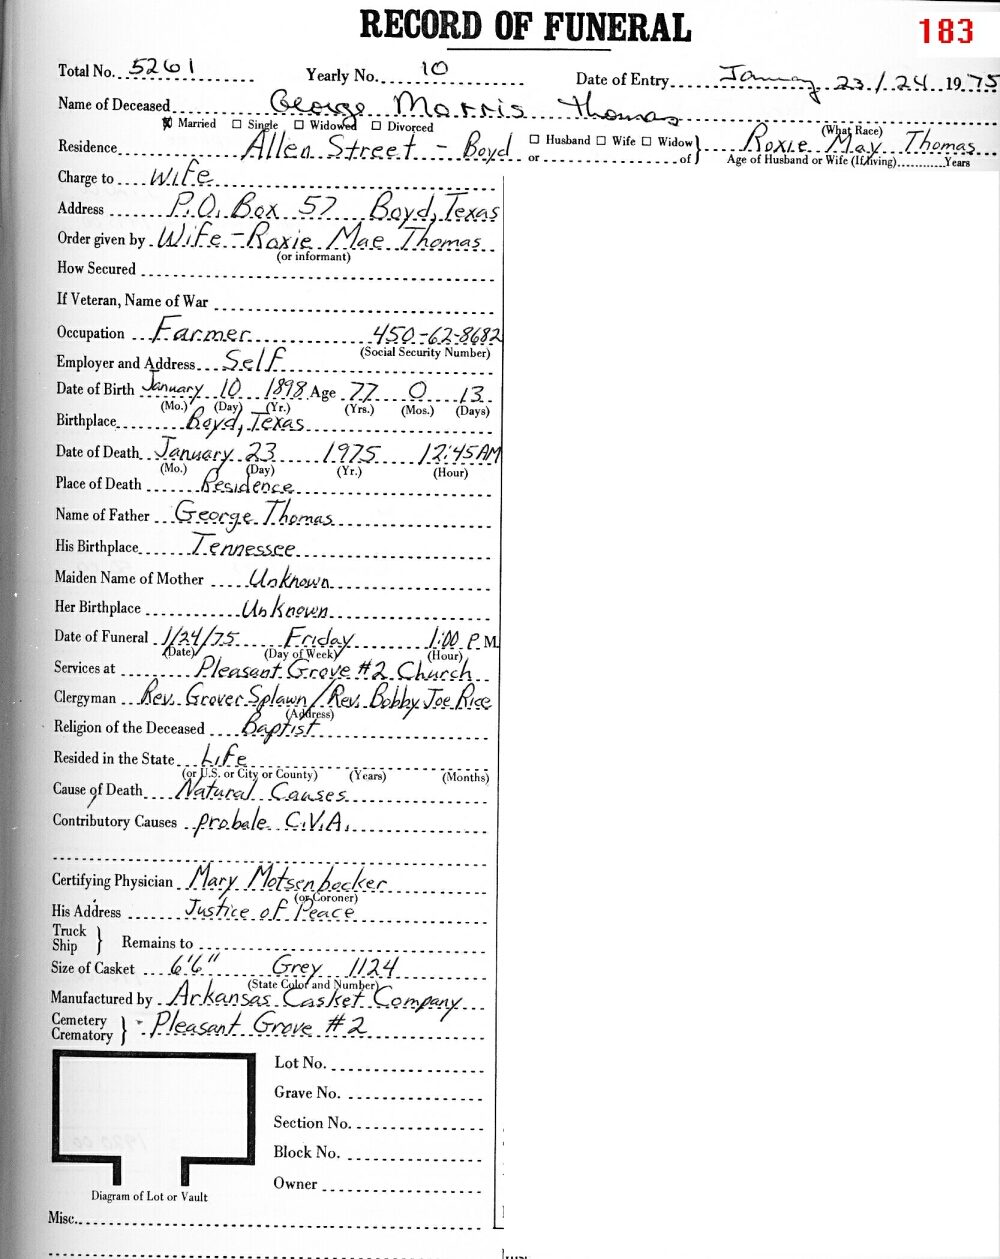 RECORD OF FUNERAL
183
Total No. 5261 Yearly No. 10 Date of Entry January 23/24 1975
Name of Deceased George Morris Thomas
(What Race)
☒ Married ☐ Single ☐ Widowed ☐ Divorced
Residence Allen Street - Boyd ☐ Husband ☐ Wife ☐ Widow or of } Roxie May Thomas
Age of Husband or Wife (If living) Years
Charge to Wife
Address P.O. Box 57 Boyd, Texas
Order given by Wife - Roxie Mae Thomas
(or informant)
How Secured
If Veteran, Name of War
Occupation Farmer 450-62-8682
(Social Security Number)
Employer and Address Self
Date of Birth January 10 1898 Age 77 0 13
(Mo.) (Day) (Yr.) (Yrs.) (Mos.) (Days)
Birthplace Boyd, Texas
Date of Death January 23 1975 12:45 AM
(Mo.) (Day) (Yr.) (Hour)
Place of Death Residence
Name of Father George Thomas
His Birthplace Tennessee
Maiden Name of Mother Unknown
Her Birthplace Unknown
Date of Funeral 1/24/75 Friday 1:00 P.M.
(Date) (Day of Week) (Hour)
Services at Pleasant Grove #2 Church
Clergyman Rev. Grover Splawn / Rev. Bobby Joe Rice
(Address)
Religion of the Deceased Baptist
Resided in the State Life
(or U.S. or City or County) (Years) (Months)
Cause of Death Natural Causes
Contributory Causes probale C.V.A.
Certifying Physician Mary Motsenbocker
(or Coroner)
His Address Justice of Peace
Truck
Ship } Remains to
Size of Casket 6'6" Grey 1124
(State Color and Number)
Manufactured by Arkansas Casket Company
Cemetery
Crematory } - Pleasant Grove #2
Lot No.
Grave No.
Section No.
Block No.
Owner
Diagram of Lot or Vault
Misc.